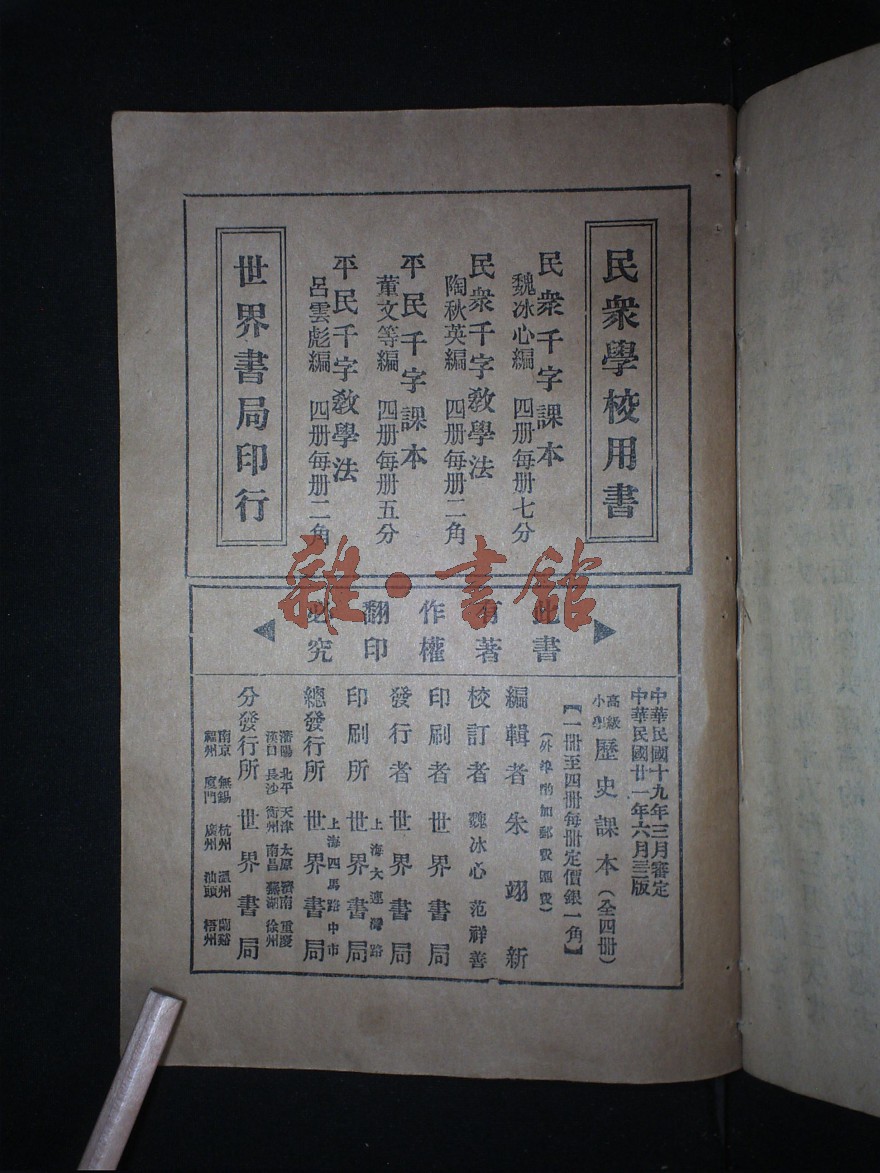 民衆學校用書
民衆千字課本
魏冰心編 四册每册七分
民衆千字教學法
陶秋英編 四册每册二角
平民千字課本
董文等編 四册每册五分
平民千字教學法
呂雲彪編 四册每册二角
世界書局印行
雜·書館
此書
有著
作權
翻印
必究
中華民國十九年三月審定
中華民國廿一年六月三版
高級小學歷史課本(全四册)
【一册至四册每册定價銀一角】
(外埠酌加郵費匯費)
編輯者 朱翊新
校訂者 魏冰心 范祥善
印刷者 世界書局
發行者 世界書局
上海大連灣路
印刷所 世界書局
上海四馬路中市
總發行所 世界書局
瀋陽 北平 天津 太原 濟南 重慶
漢口 長沙 衡州 南昌 蕪湖 徐州
分發行所 世界書局
南京 無錫 杭州 溫州 蘭谿
福州 廈門 廣州 汕頭 梧州